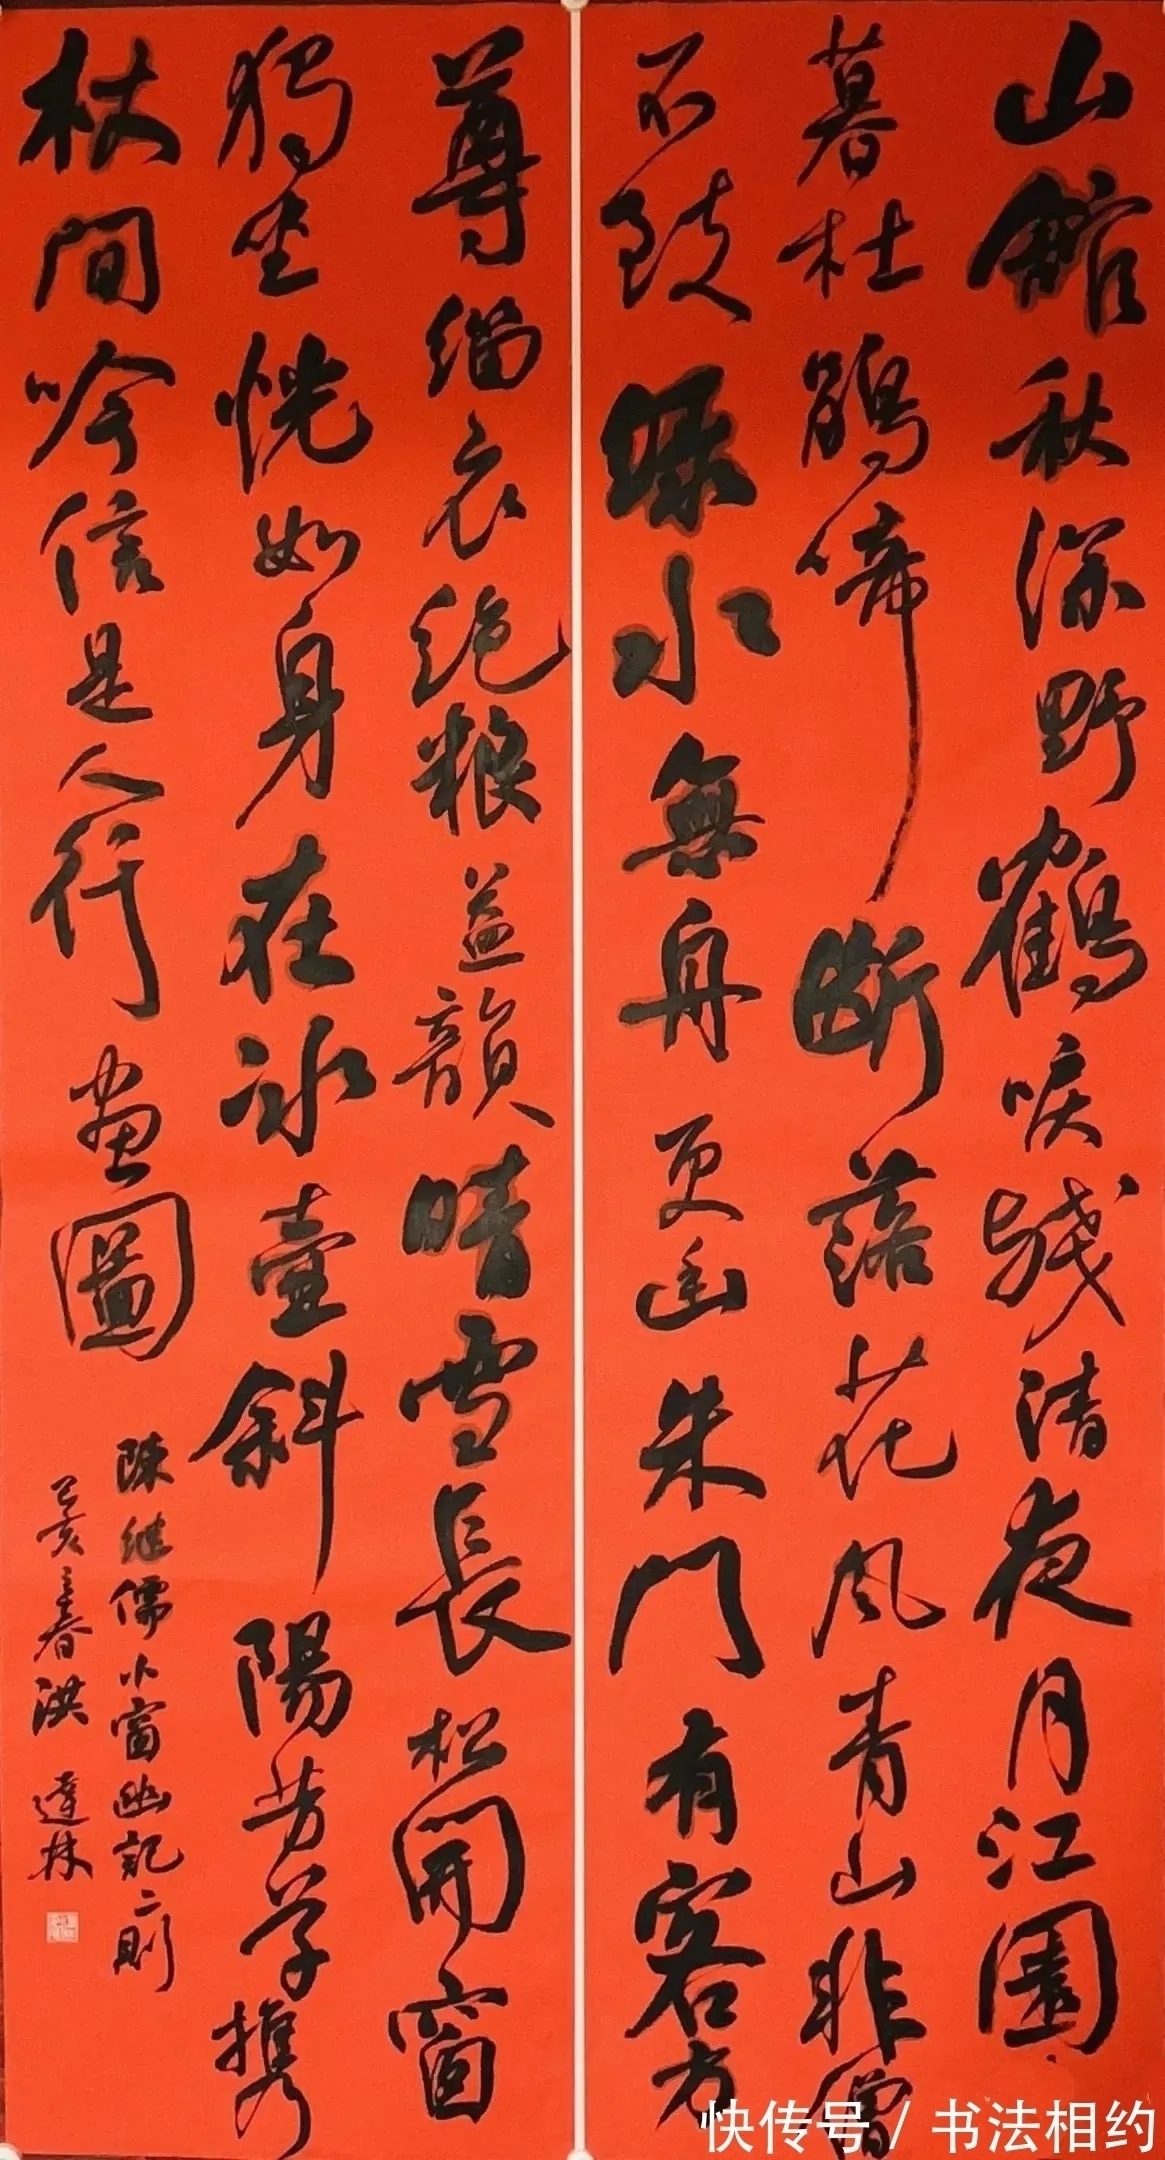 山館秋深野鶴唳殘清夜月江園
暮杜鵑啼断落花风青山非僧
不致緑水無舟更幽朱門有客方
尊緇衣絶粮益韻晴雪長松開窗
獨坐恍如身在冰壺斜陽芳草携
杖間吟信是人行畫圖
陳继儒小窗幽記二則
己亥春洪達林
快传号 / 书法相约